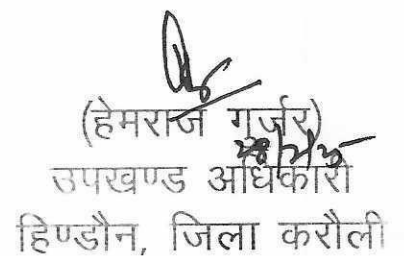 (हेमराज गुर्जर)
उपखण्ड अधिकारी
हिण्डौन, जिला करौली